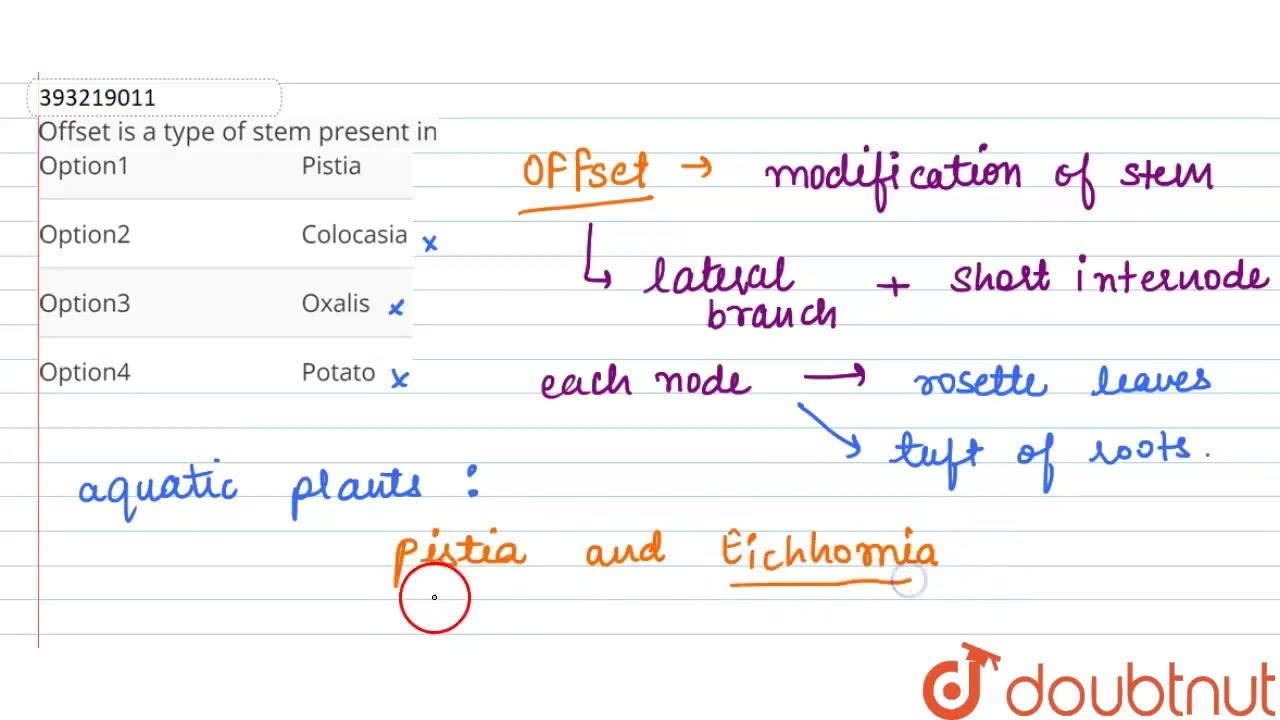 393219011
Offset is a type of stem present in
Option1 Pistia
Option2 Colocasia x
Option3 Oxalis x
Option4 Potato x
Offset → modification of stem
lateral branch + short internode
each node → rosette leaves
tuft of roots.
aquatic plants :
Pistia and Eichhornia
doubtnut